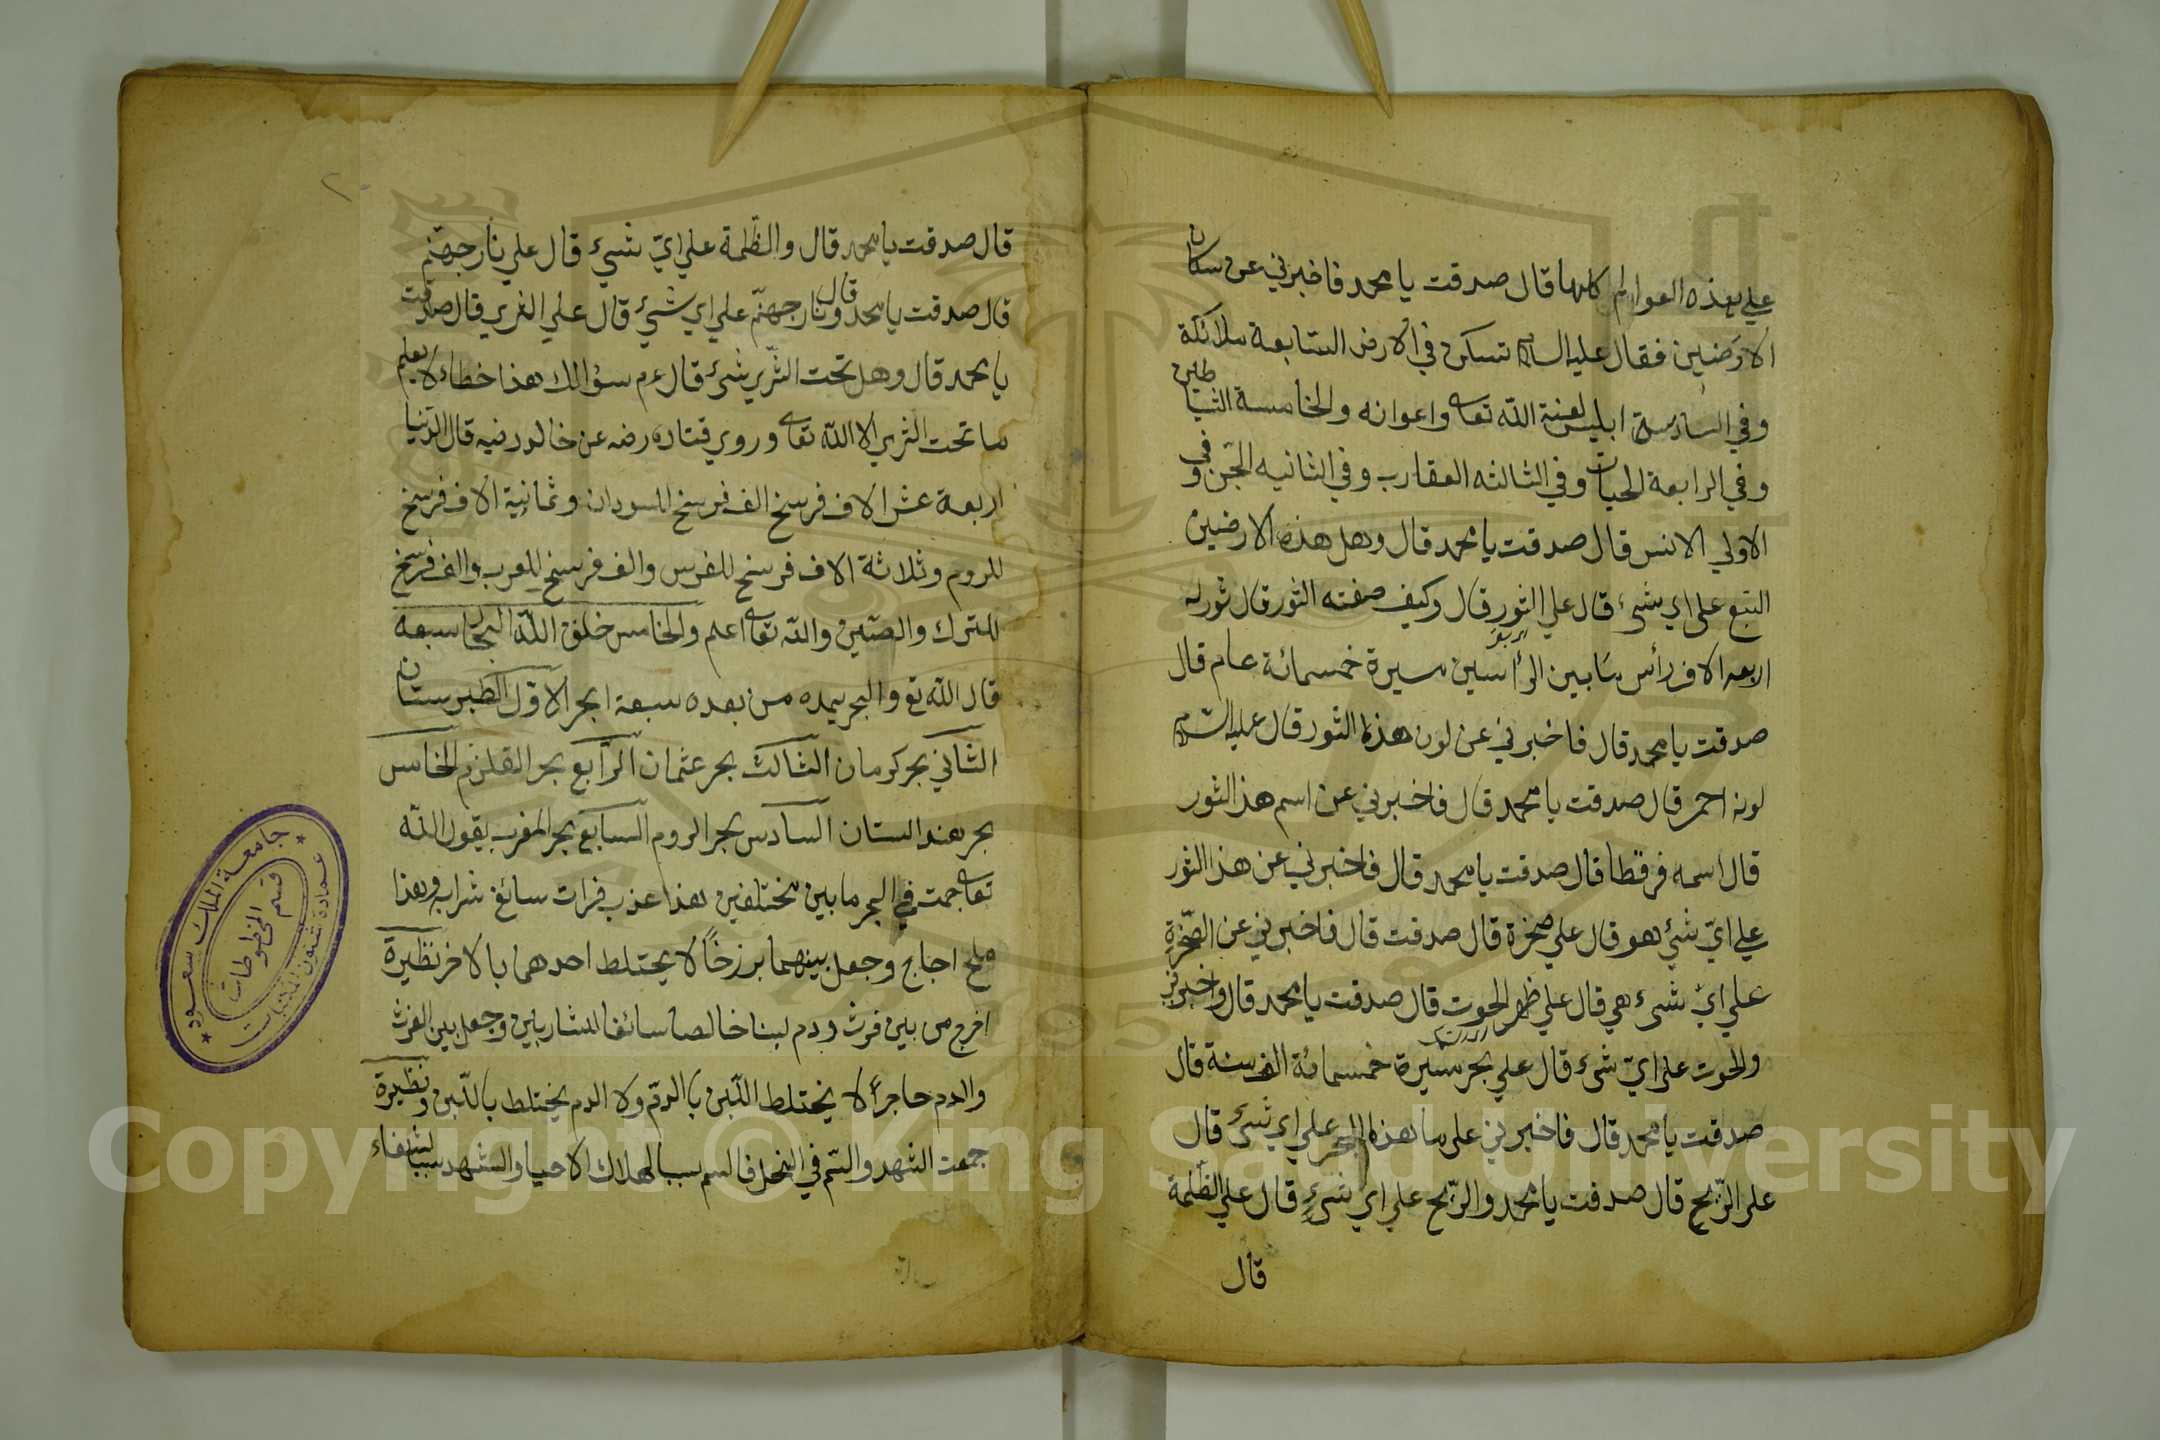 علي هذه العوالم كلها قال صدقت يا محمد فاخبرني عن سكان
الارضين فقال عليه السلام تسكن في الارض السابعة ملائكة
وفي السادسة ابليس لعنة الله تعا واعوانه والخامسة الشياطين
وفي الرابعة الحيات وفي الثالثه العقارب وفي الثانيه الجن وفي
الاولي الانس قال صدقت يا محمد قال وهل هذه الارضين
السبع علي اي شيء قال علي الثور قال وكيف صفته الثور قال ثور له
اربعه الاف رأس ما بين الرأسين مسيرة خمسمائة عام قال
صدقت يا محمد قال فاخبرني عن لون هذه الثور قال عليه السلام
لونه احمر قال صدقت يا محمد قال فاخبرني عن اسم هذ الثور
قال اسمه فرقطا قال صدقت يا محمد قال فاخبرني عن هذ الثور
علي ايّ شيء هو قال علي صخرة قال صدقت قال فاخبرني عن الصّخرة
علي ايّ شيء هي قال علي ظهر الحوت قال صدقت يا محمد قال واخبرني
والحوت علي ايّ شيء قال علي بحر مسيرة خمسمائة الف سنة قال
صدقت يا محمد قال فاخبرني علي ما هذه البحر علي اي شيء قال
علي الرّيح قال صدقت يا محمد والرّيح علي اي شيء قال علي الظّلمة
قال
قال صدقت يا محمد قال والظّلمة علي ايّ شيء قال علي نار جهنّم
قال صدقت يا محمد قال ونار جهنّم علي اي شيء قال علي الثري قال صدقت
يا محمد قال وهل تحت الثّري شيء قال عم سؤالك هذا خطاء لا يعلم
ما تحت الثري الا الله تعا وروي قتاده رضه عن خالد رضيه قال الدّنيا
اربعة عشر الاف فرسخ الف فرسخ للسودان وثمانية الاف فرسخ
للروم وثلاثة الاف فرسخ للفرس والف فرسخ للعرب والف فرسخ
للترك والصّين والله تعا اعلم والخامس خلق الله البحار سبعة
قال الله تع والبحر يمده من بعده سبعة ابحر الاوّل الطبرستان
الثاني بحر كرمان الثالث بحر عثمان الرّابع بحر القلزم الخامس
بحر هندالستان السادس بحر الروم السابع بحر المغرب يقول الله
تعا جمت في البحر ما بين مختلفين هذا عذب فرات سائغ شرابه وهذا
ملح اجاج وجعل بينهما برزخًا لا يختلط احدهما بالاخر نظيرة
اخرج من بين فرث ودم لبنا خالصا سائغا للشاربين وجعل بين الفرث
والدم حاجزًا لا يختلط اللّبن بالدّم ولا الدم يختلط باللّبن ونظيرة
جمعت الشهد والسّم في النحل فالسم سببا لهلاك الاحيا والشهد سببا لشفاء
جامعة الملك سعود
عمادة شئون المكتبات
قسم المخطوطات
Copyright © King Saud University
1957